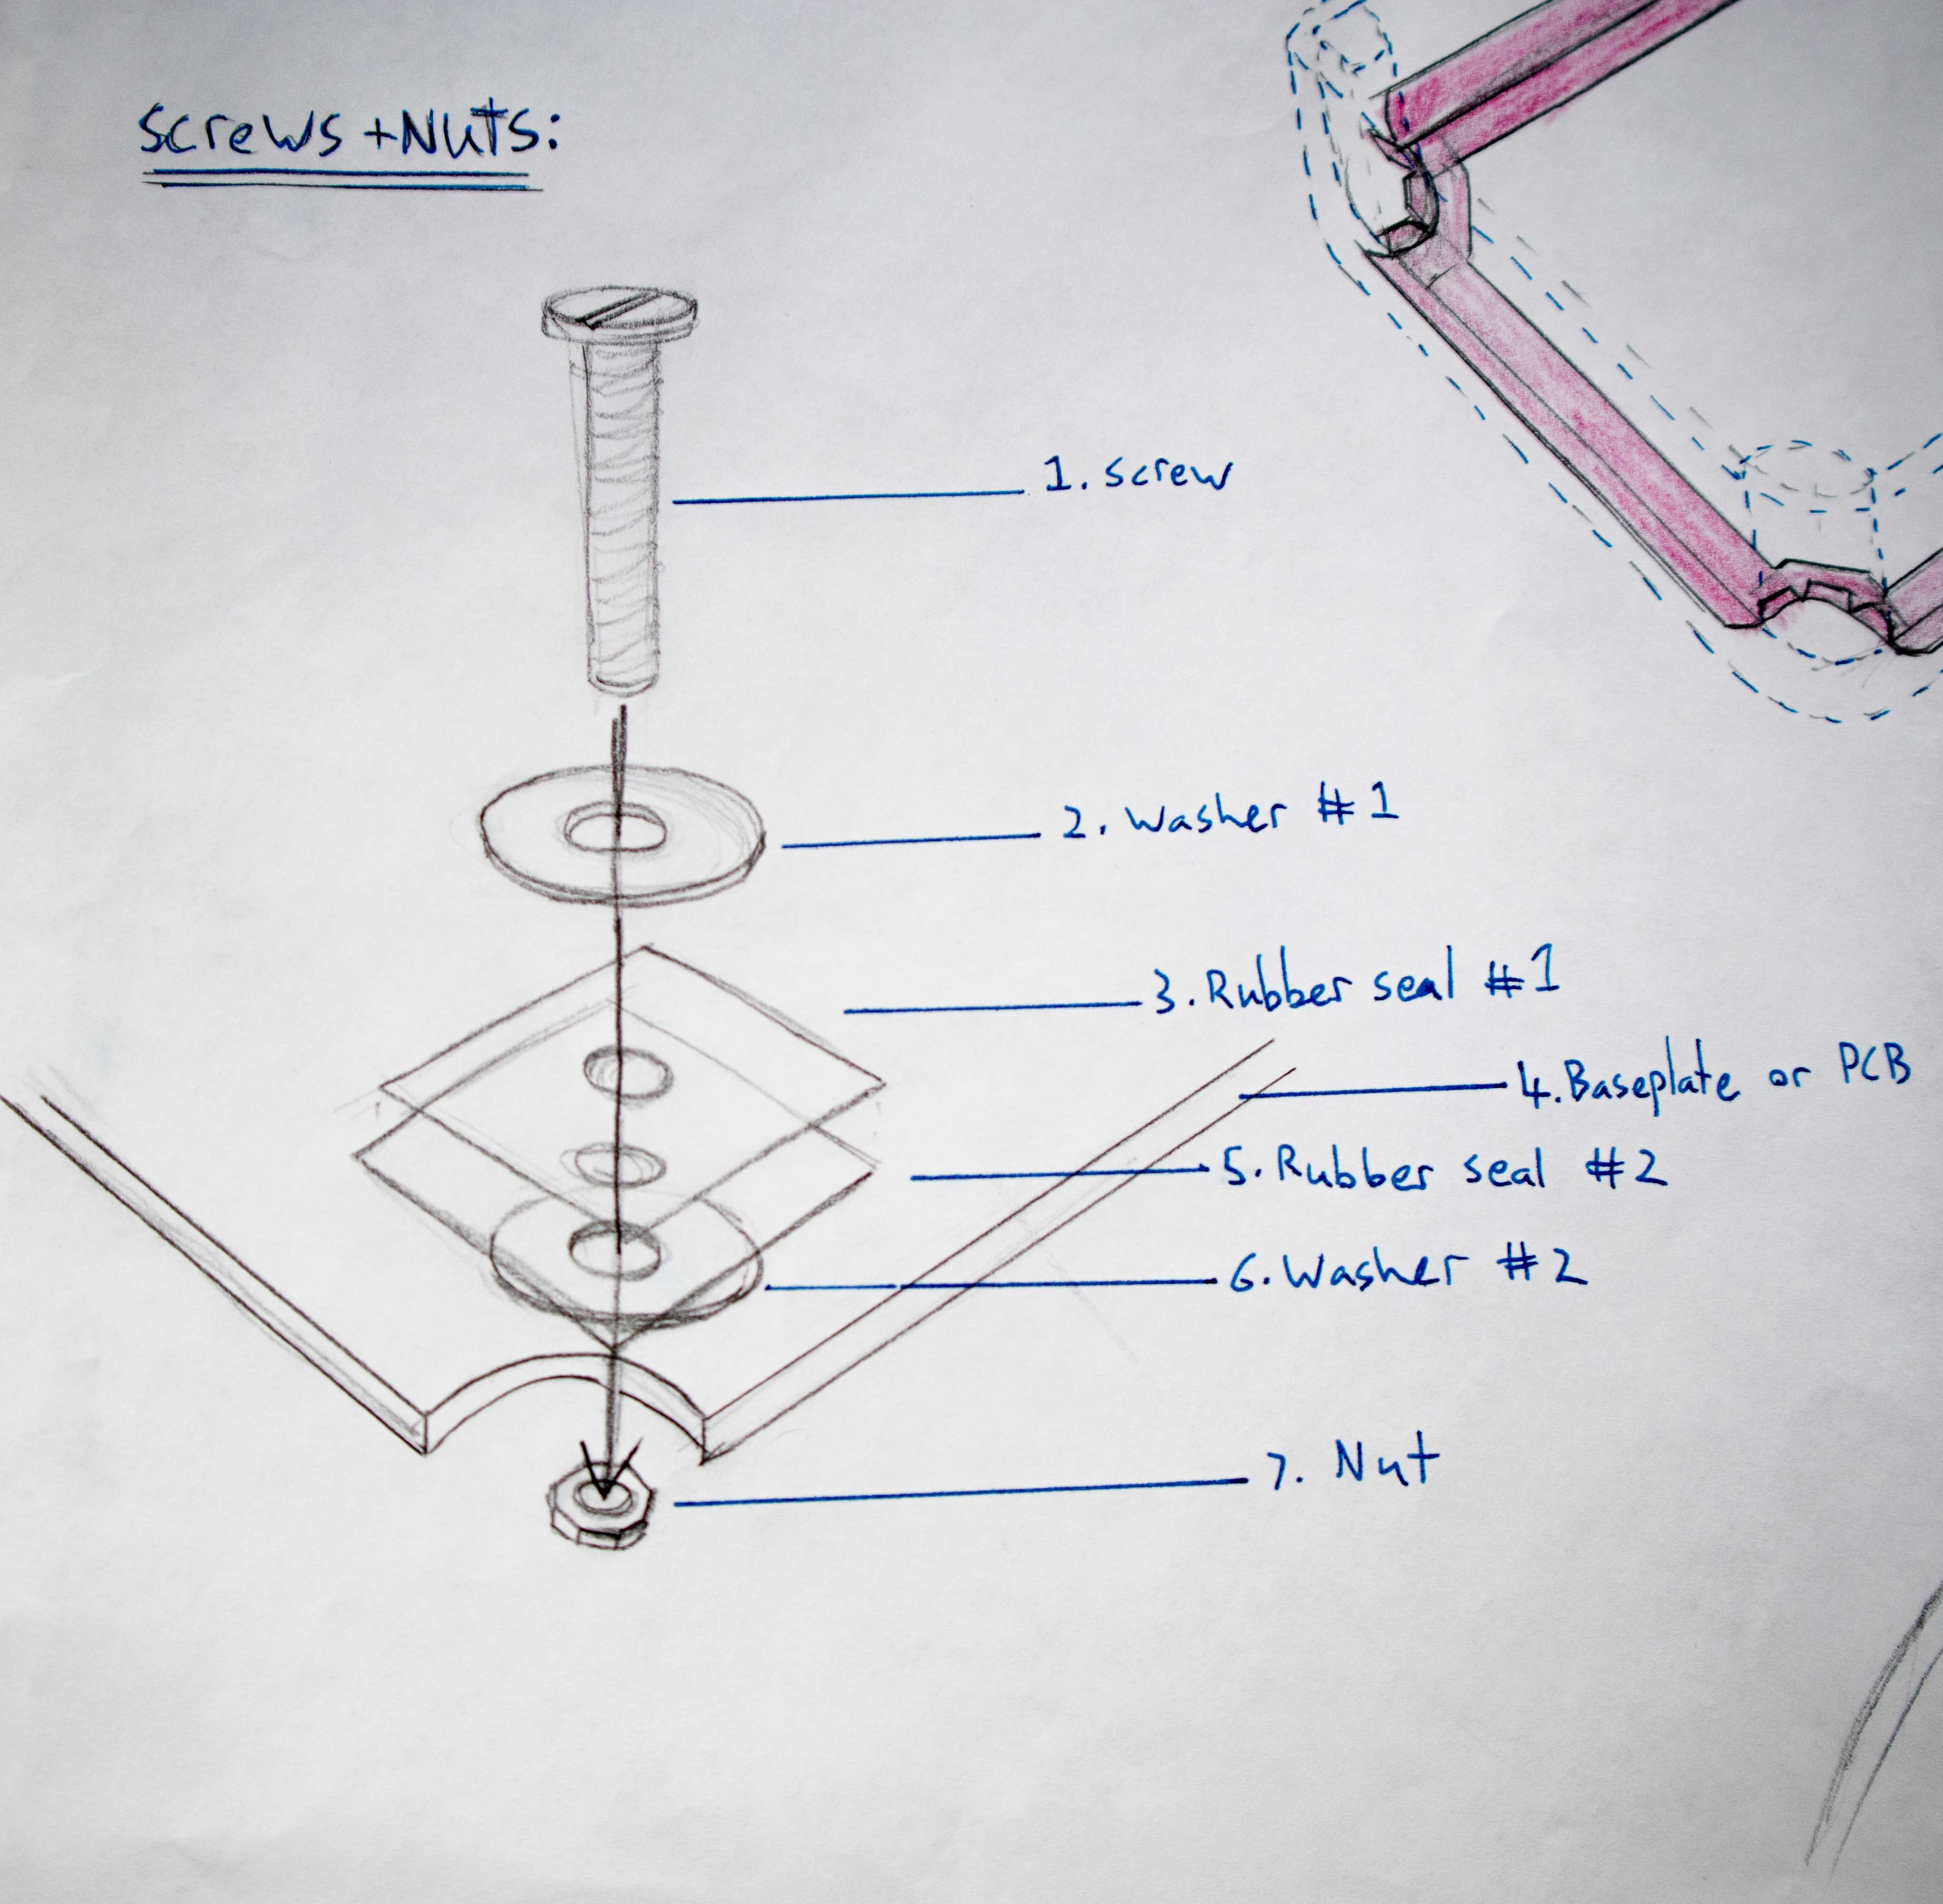 screws + Nuts:
1. screw
2. Washer #1
3. Rubber seal #1
4. Baseplate or PCB
5. Rubber seal #2
6. Washer #2
7. Nut